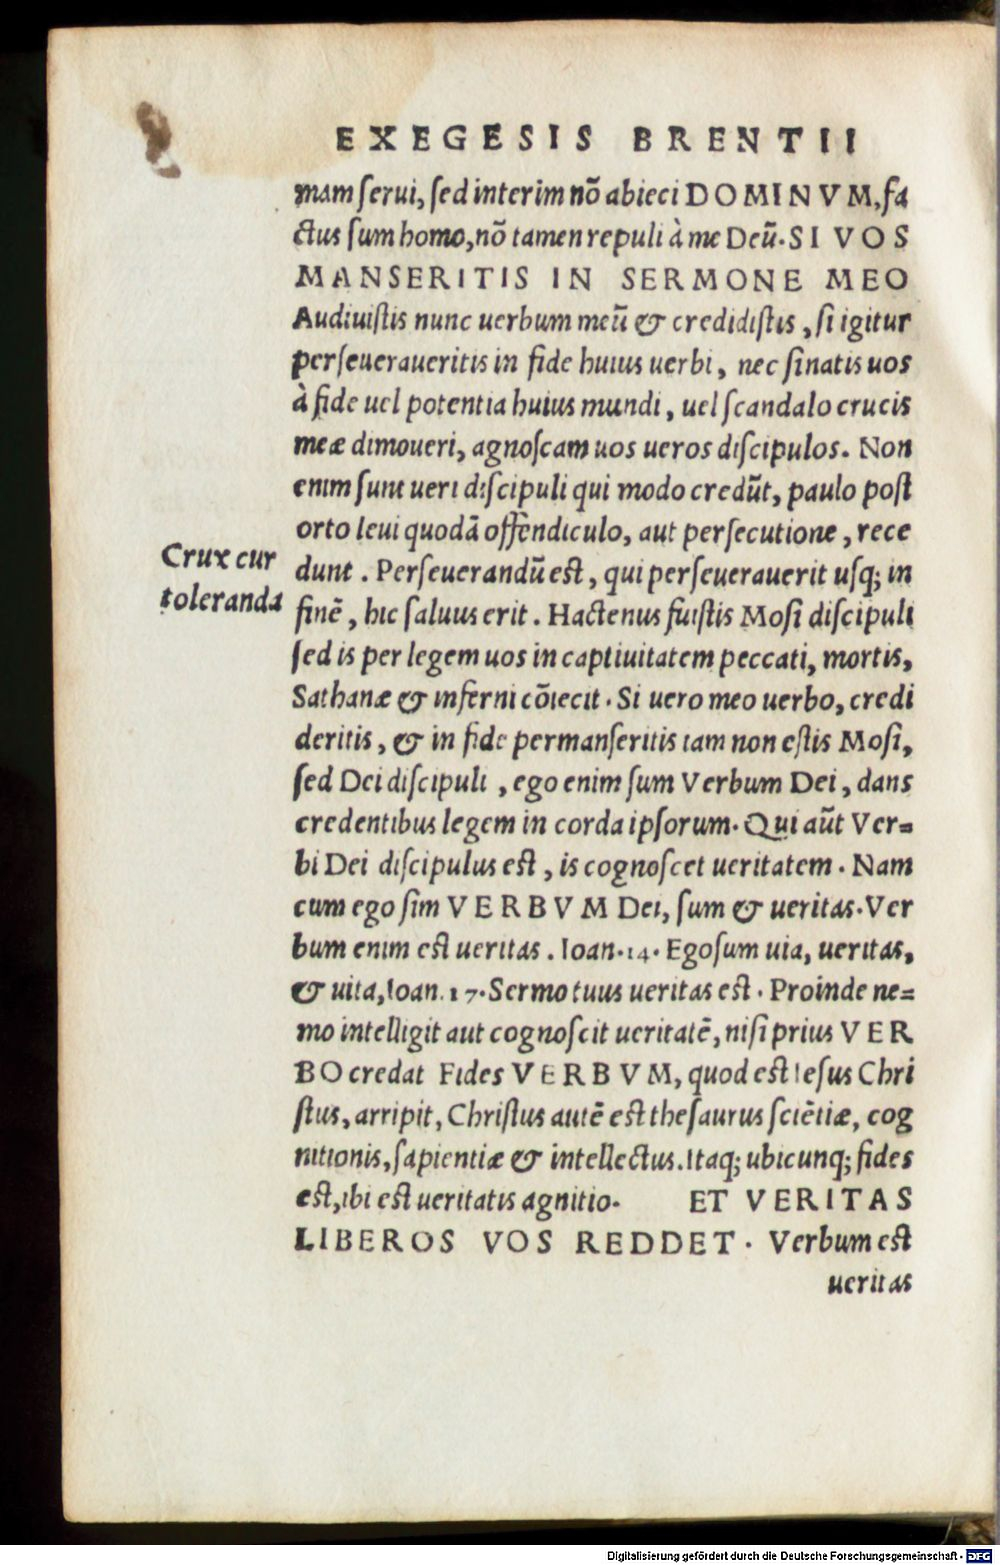 EXEGESIS BRENTII
mam ſerui, ſed interim nõ abieci DOMINVM, fa
ctus ſum homo, nõ tamen repuli à me Deũ. SI VOS
MANSERITIS IN SERMONE MEO
Audiuiſtis nunc uerbum meũ & credidiſtis, ſi igitur
perſeueraueritis in fide huius uerbi, nec ſinatis uos
à fide uel potentia huius mundi, uel ſcandalo crucis
meæ dimoueri, agnoſcam uos ueros diſcipulos. Non
enim ſunt ueri diſcipuli qui modo credũt, paulo poſt
orto leui quodã offendiculo, aut perſecutione, rece
Crux cur
toleranda
dunt. Perſeuerandũ eſt, qui perſeuerauerit uſq; in
finẽ, hic ſaluus erit. Hactenus fuiſtis Moſi diſcipuli
ſed is per legem uos in captiuitatem peccati, mortis,
Sathanæ & inferni cõiecit. Si uero meo uerbo, credi
deritis, & in fide permanſeritis iam non eſtis Moſi,
ſed Dei diſcipuli, ego enim ſum Verbum Dei, dans
credentibus legem in corda ipſorum. Qui aũt Ver=
bi Dei diſcipulus eſt, is cognoſcet ueritatem. Nam
cum ego ſim VERBVM Dei, ſum & ueritas. Ver
bum enim eſt ueritas. Ioan. 14. Ego ſum uia, ueritas,
& uita, Ioan. 17. Sermo tuus ueritas eſt. Proinde ne=
mo intelligit aut cognoſcit ueritatẽ, niſi prius VER
BO credat Fides VERBVM, quod eſt Ieſus Chri
ſtus, arripit, Chriſtus autẽ eſt theſaurus ſciẽtiæ, cog
nitionis, ſapientiæ & intellectus. Itaq; ubicunq; fides
eſt, ibi eſt ueritatis agnitio. ET VERITAS
LIBEROS VOS REDDET. Verbum eſt
ueritas
Digitalisierung gefördert durch die Deutsche Forschungsgemeinschaft - DFG